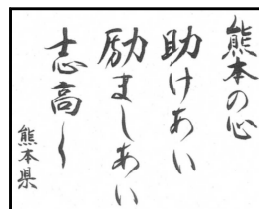 熊本の心
助けあい
励ましあい
志高く
熊本県